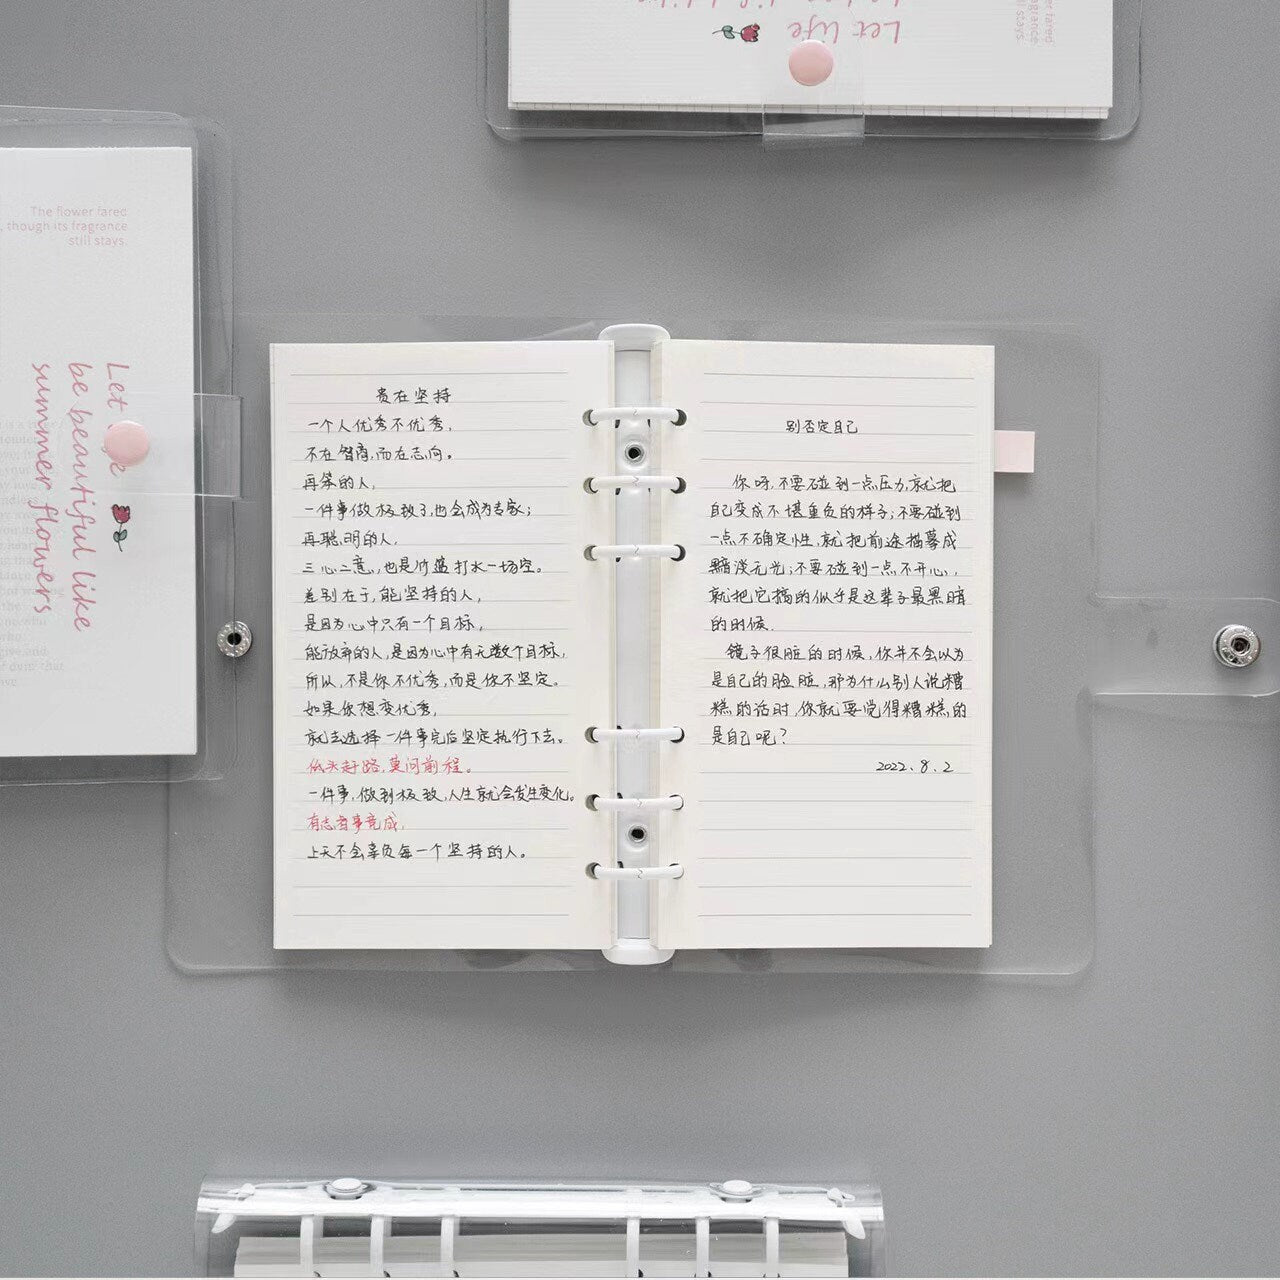 Let life
The flower fared
, though its fragrance
still stays.
Let life
be beautiful like
summer flowers
贵在坚持
一个人优秀不优秀，
不在智商，而在志向。
再笨的人，
一件事做极致了，也会成为专家；
再聪明的人，
三心二意，也是竹篮打水一场空。
差别在于，能坚持的人，
是因为心中只有一个目标，
能放弃的人，是因为心中有无数个目标，
所以，不是你不优秀，而是你不坚定。
如果你想变优秀，
就去选择一件事完后坚定执行下去。
低头赶路，莫问前程。
一件事，做到极致，人生就会发生变化。
有志者事竟成，
上天不会辜负每一个坚持的人。
别否定自己
你呀，不要碰到一点压力，就把
自己变成不堪重负的样子；不要碰到
一点不确定性，就把前途描摹成
黯淡无光；不要碰到一点不开心，
就把它搞的似乎是这辈子最黑暗
的时候．
镜子很脏的时候，你并不会以为
是自己的脸脏，那为什么别人说糟
糕的话时，你就要觉得糟糕的
是自己呢？
2022.8.2